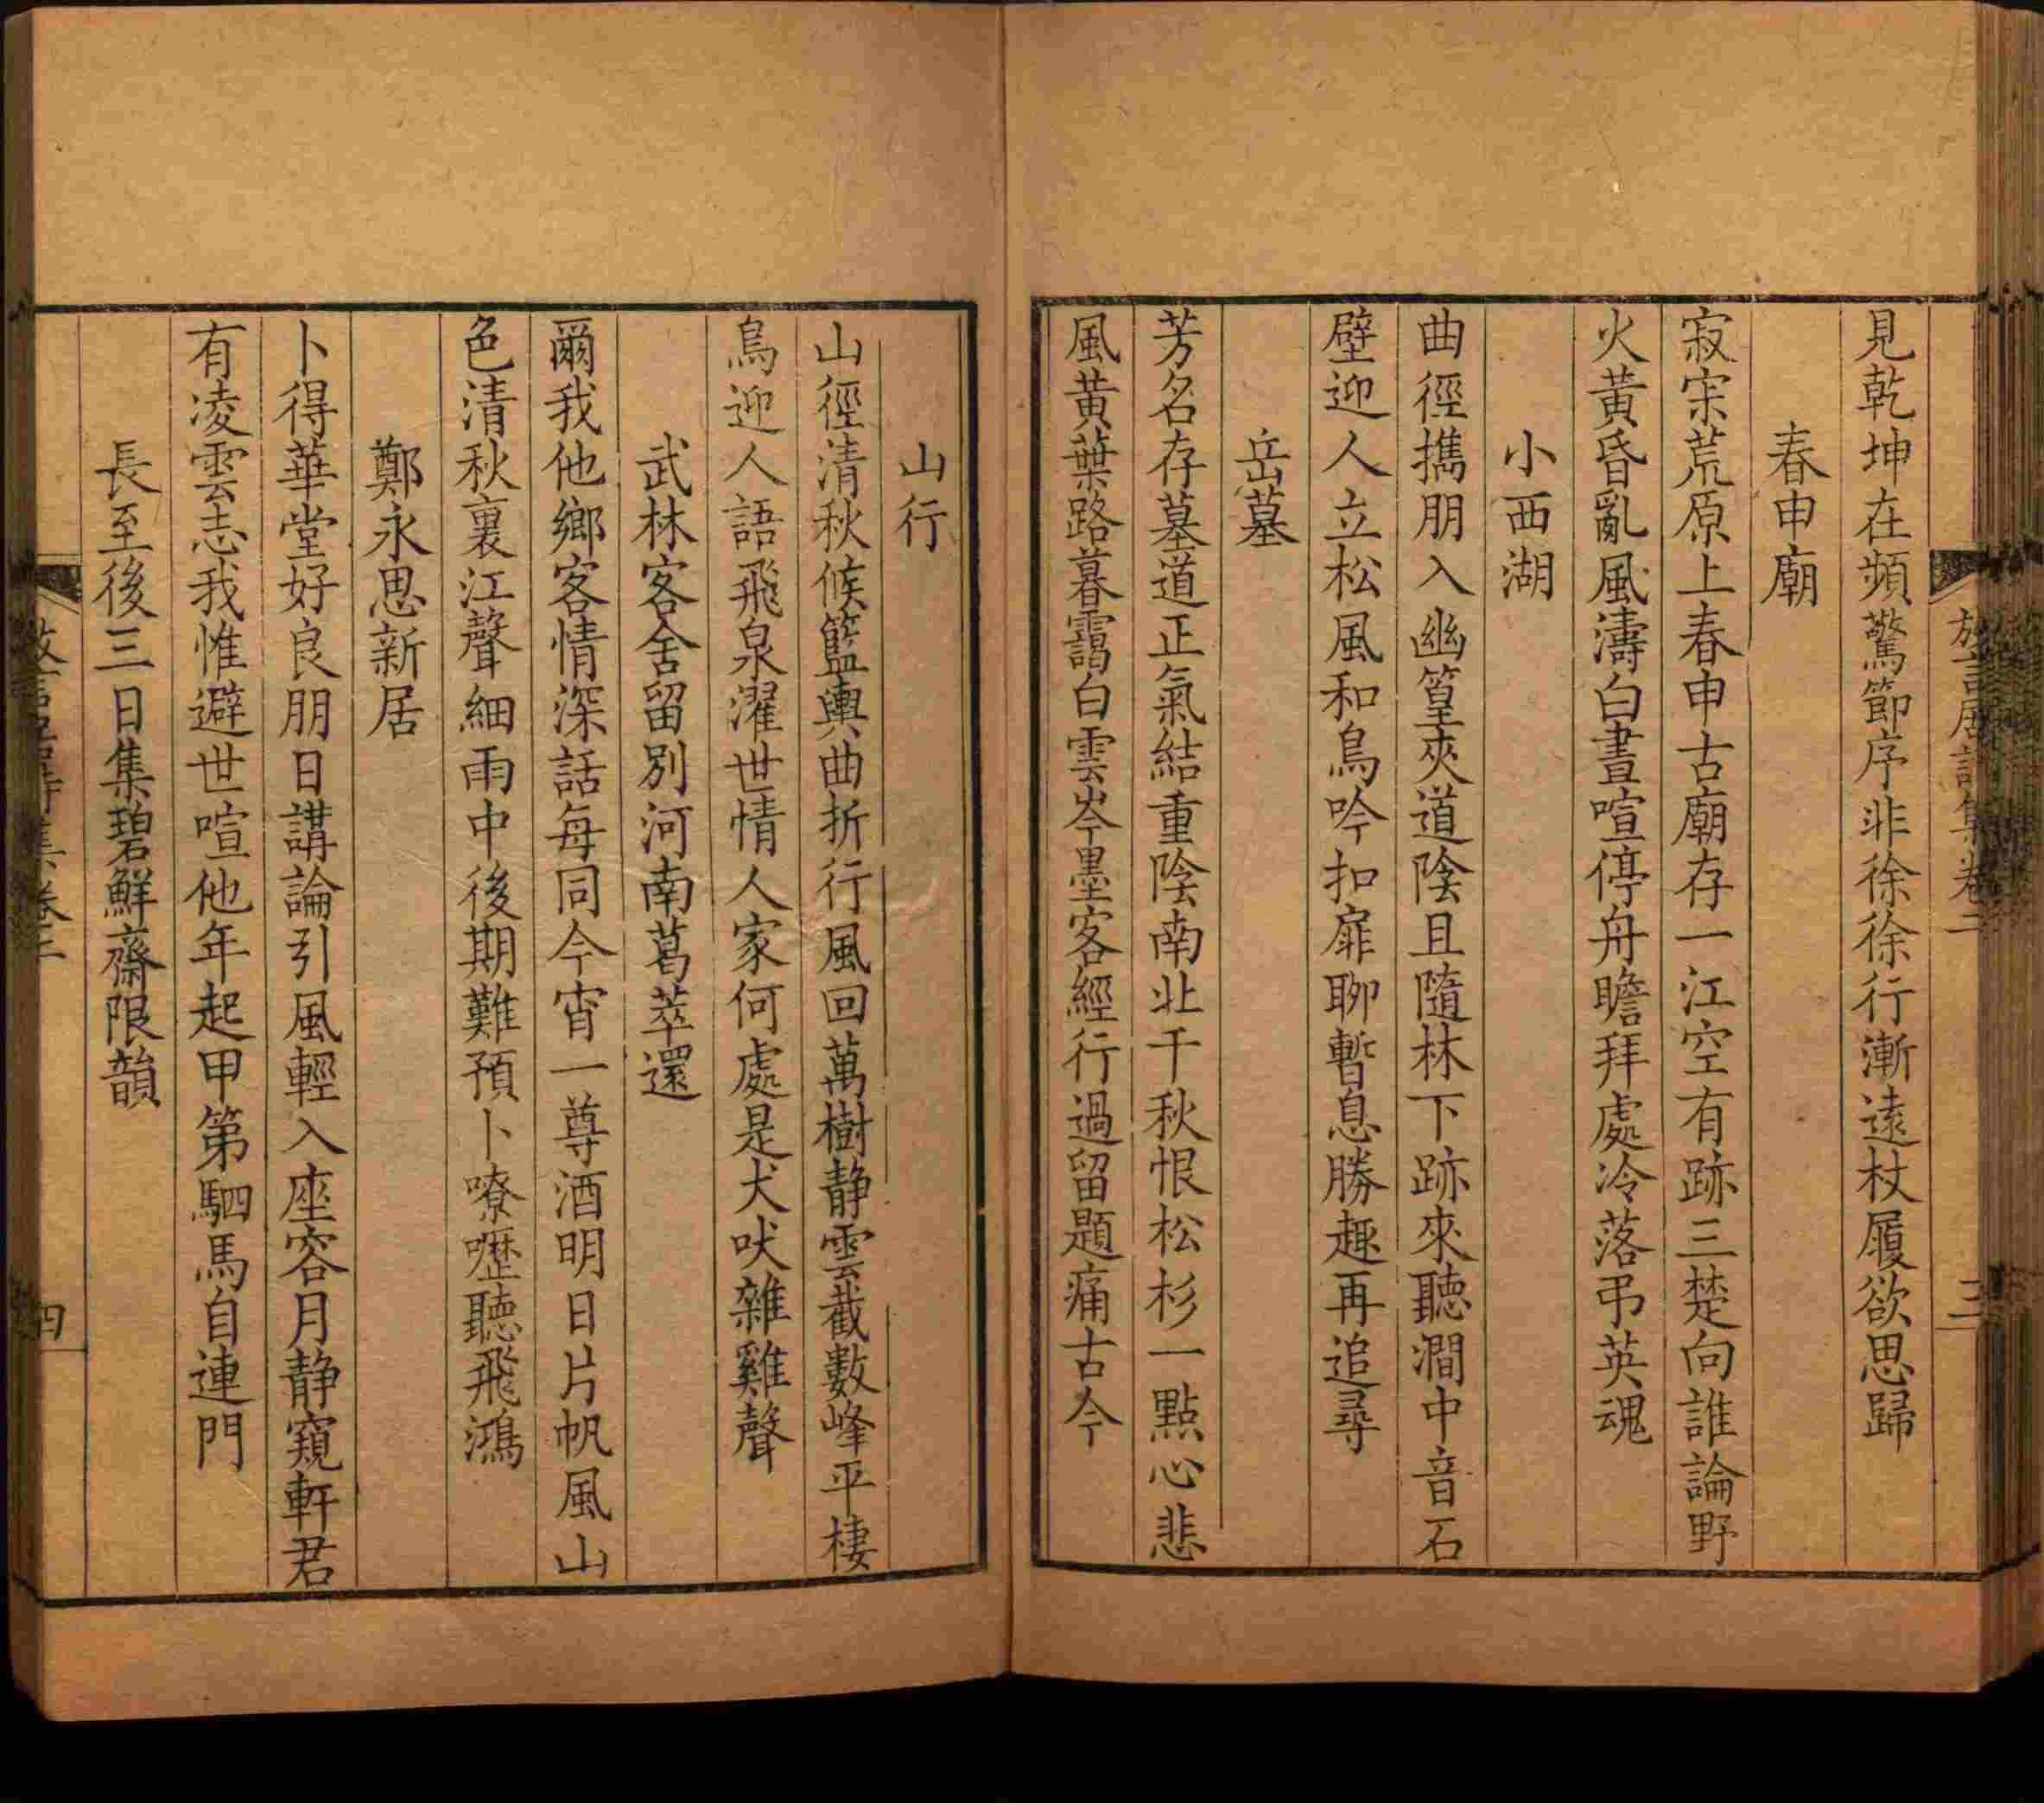 放言居詩集卷二
三
見乾坤在頻驚節序非徐徐行漸遠杖履欲思歸
春申廟
寂寞荒原上春申古廟存一江空有跡三楚向誰論野
火黃昏亂風濤白晝喧停舟瞻拜處冷落弔英魂
小西湖
曲徑攜朋入幽篁夾道陰且隨林下跡來聽澗中音石
壁迎人立松風和鳥吟扣扉聊暫息勝趣再追尋
岳墓
芳名存墓道正氣結重陰南北千秋恨松杉一點心悲
風黃葉路暮靄白雲岑墨客經行過留題痛古今
山行
山徑清秋候籃輿曲折行風回萬樹静雲截數峰平棲
鳥迎人語飛泉濯世情人家何處是犬吠雜雞聲
武林客舍留別河南葛萃還
爾我他鄉客情深話每同今宵一尊酒明日片帆風山
色清秋裏江聲細雨中後期難預卜嘹嚦聽飛鴻
鄭永思新居
卜得華堂好良朋日講論引風輕入座容月静窺軒君
有凌雲志我惟避世喧他年起甲第駟馬自連門
長至後三日集碧鮮齋限韻
放言居詩集卷二
四